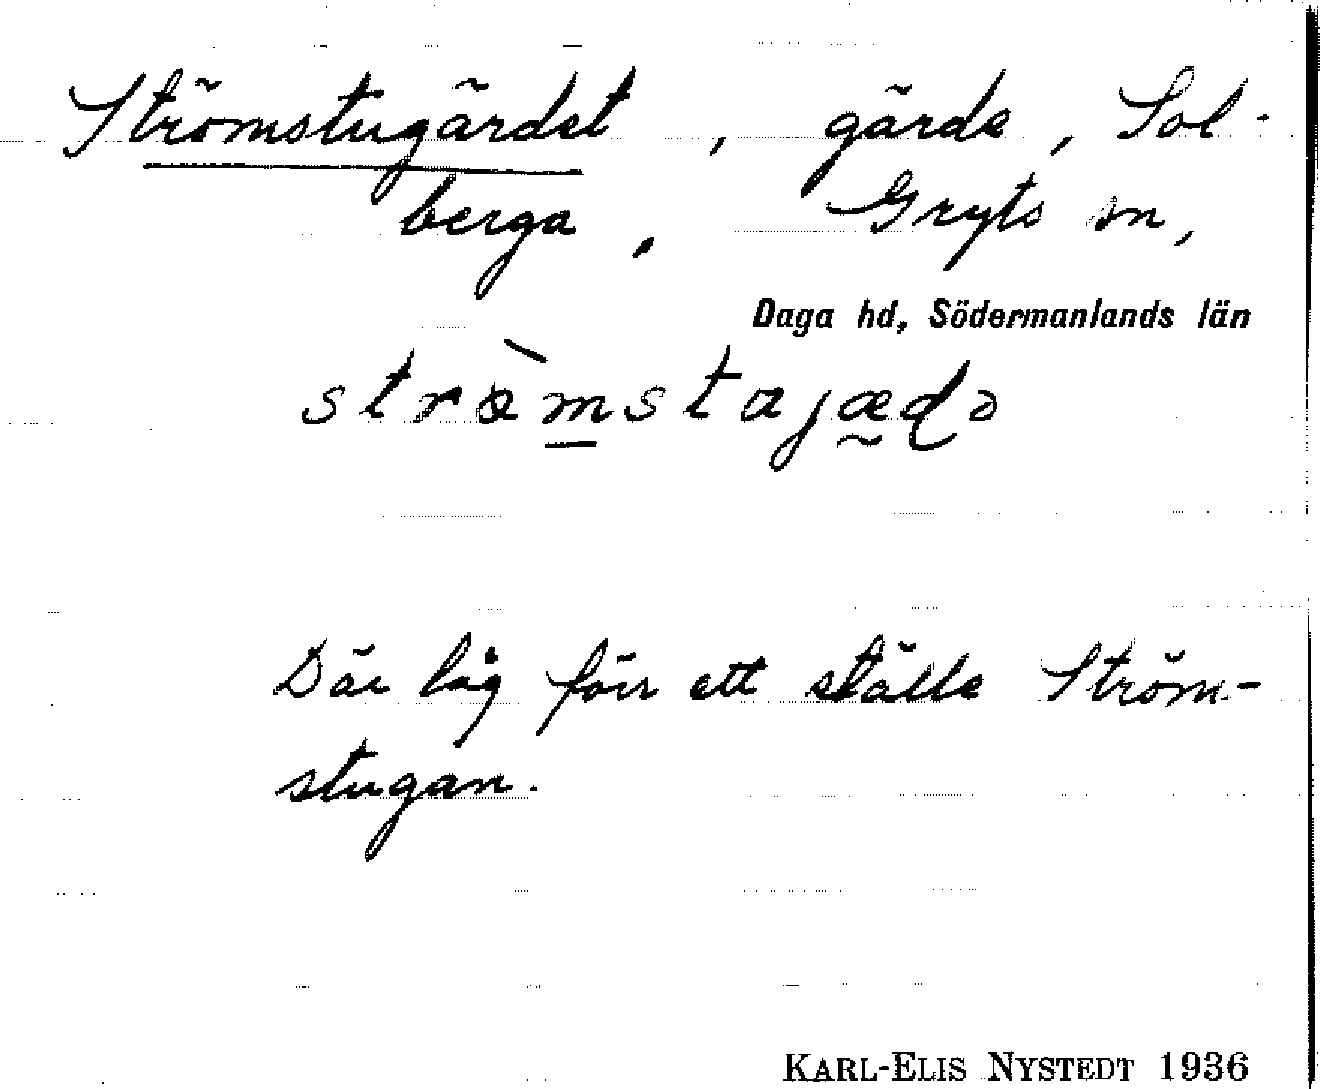 Strömstugärdet, gärde, Sol-
berga, Gryts sn,
Daga hd, Södermanlands län
strömstajædə
Där låg förr ett ställe Ström-
stugan.
KARL-ELIS NYSTEDT 1936